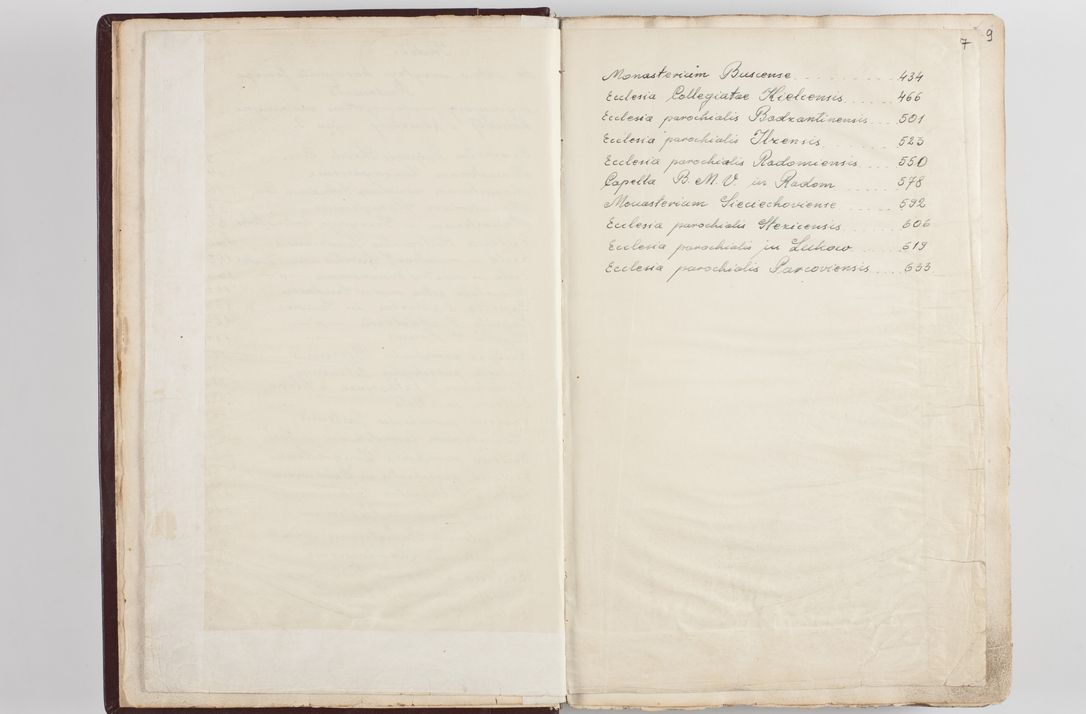 7 9
Monasterium Buscense . . . . . . . . . 434
Ecclesia Collegiatae Kielcensis . . . . . 466
Ecclesia parochialis Bodzantinensis . . . 501
Ecclesia parochialis Ilzensis . . . . . 523
Ecclesia parochialis Radomiensis . . . . . 550
Capella B. M. V. in Radom . . . . . 578
Monasterium Sieciechoviense . . . . . 592
Ecclesia parochialis Stezicensis . . . . 606
Ecclesia parochialis in Lukow . . . . 619
Ecclesia parochialis Parcoviensis . . . . 633